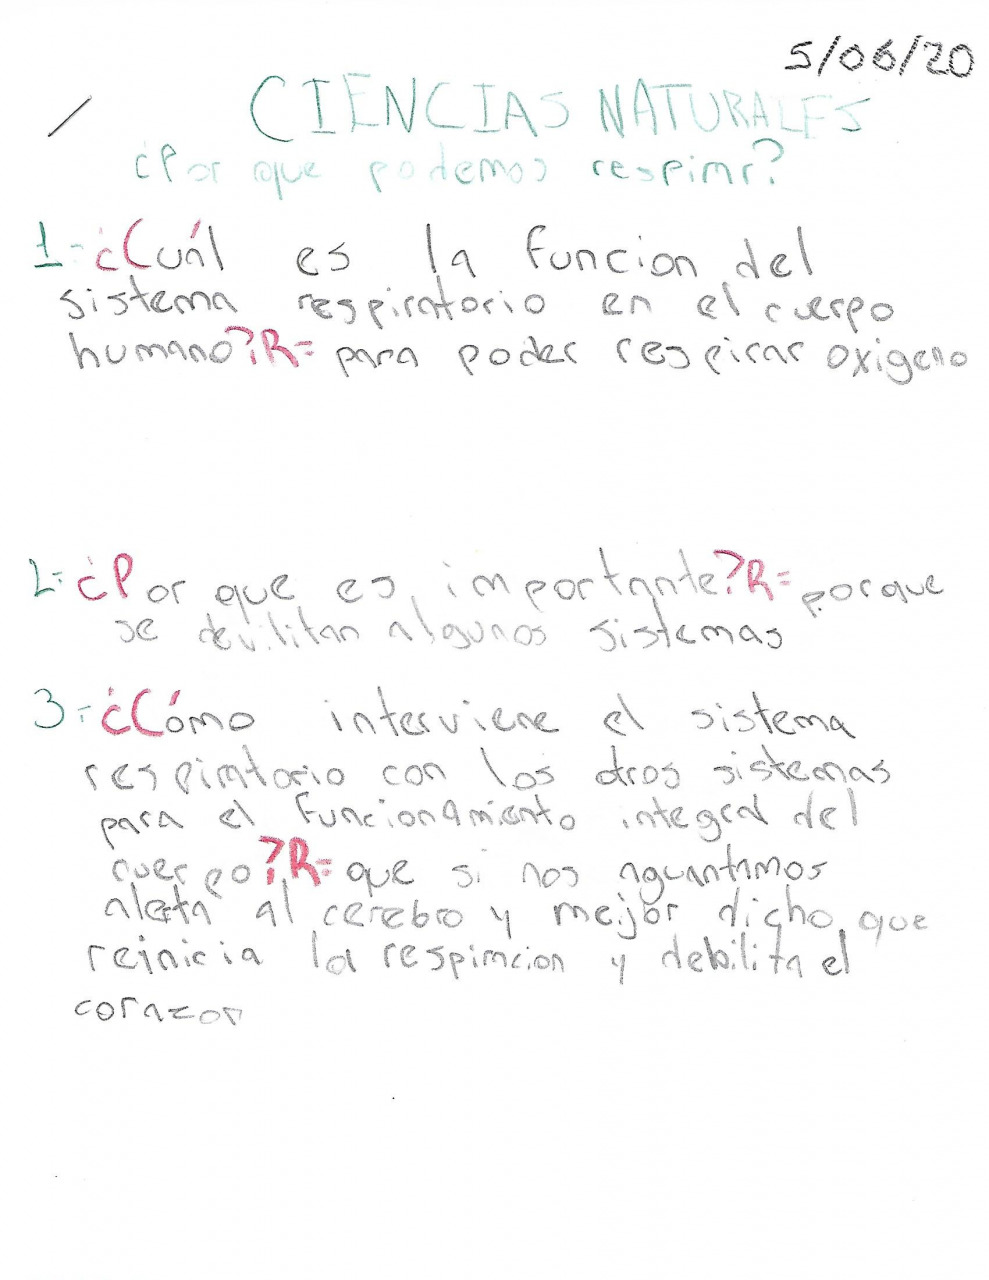 5/06/20
CIENCIAS NATURALES
¿Por que podemos respirar?
1-¿Cuál es la funcion del
sistema respiratorio en el cuerpo
humano?R= para poder respirar oxigeno
2-¿Por que es importante?R= porque
se devilitan algunos sistemas
3-¿Cómo interviene el sistema
respiratorio con los otros sistemas
para el funcionamiento integral del
cuerpo?R= que si nos aguantamos
alerta al cerebro y mejor dicho que
reinicia la respiracion y debilita el
corazon